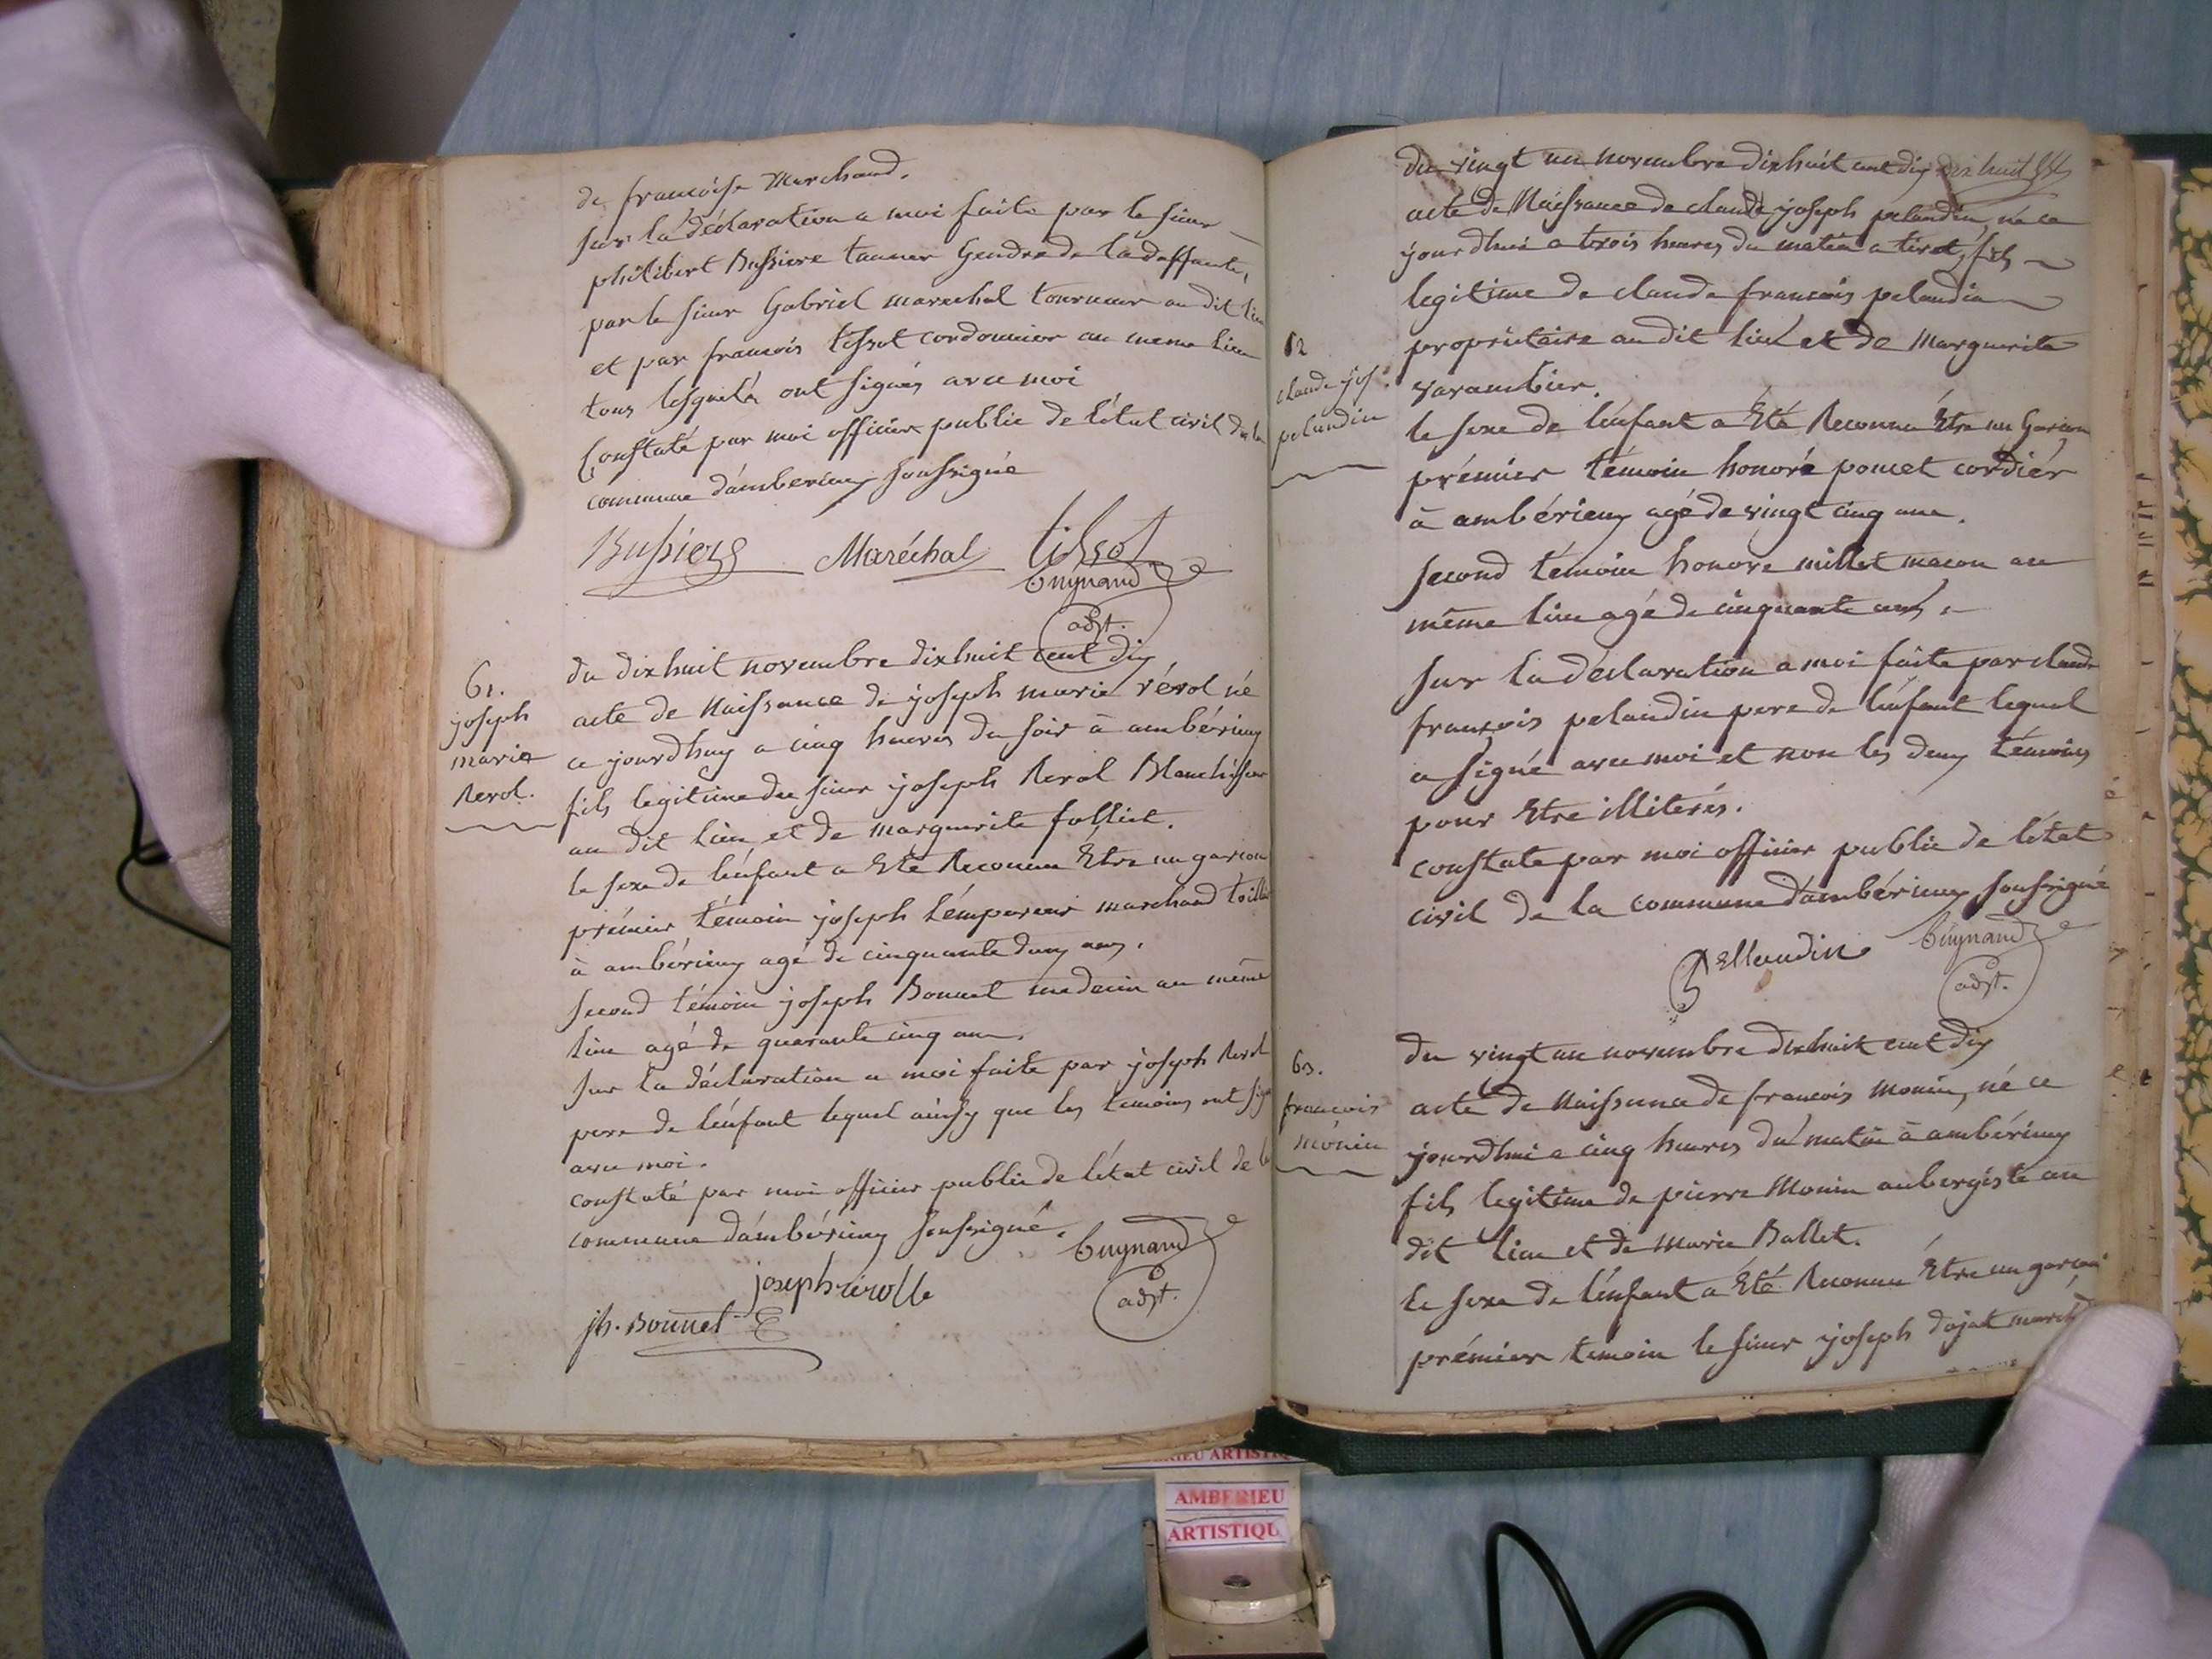 de françoise Marchand.
sur la déclaration a moi faite par le sieur
philibert Bussiere tanneur Gendre de la deffunte,
par le sieur Gabriel marechal tourneur au dit lieu
et par francois tissot cordonnier au meme lieu
tous lesquels ont signés avec moi
Constaté par moi officier public de l'état civil de la
commune d'amberieux soussigné
Bussiere Maréchal tissot
Cuynand
adjt.
61.
joseph
marie
Rerol.
du dixhuit novembre dixhuit cent dix
acte de Naissance de joseph marie rérol né
ce jourdhuy a cinq heures du soir à ambérieux
fils legitime du sieur joseph Rerol Blanchisseur
au dit lieu et de marguerite folliet.
le sexe de l'enfant a Eté Reconnu Etre un garcon
prémier témoin joseph l'empereur marchand toilier
à ambérieux agé de cinquante deux ans.
second témoin joseph Bonnet medecin au même
lieu agé de quarante cinq ans.
sur la déclaration a moi faite par joseph Rerol
pere de l'enfant lequel ainsy que les temoins ont signé
avec moi.
constaté par moi officier public de l'état civil de la
commune d'ambérieux soussigné.
Cuynand
adjt.
joseph rérolle
jh. Bonnet
62
claude jos.
pelandin
du vingt un novembre dixhuit cent dix dix huit
acte de Naissance de claude joseph pelandin, né ce
jourdhui a trois heures du matin a tiret, fils
legitime de claude francois pelandin
propriétaire au dit lieu et de Marguerite
varambier.
le sexe de l'enfant a Eté Reconnu Etre un Garcon
prémier témoin honoré poncet cordier
à ambérieux agé de vingt cinq ans.
second témoin honore millet macon au
même lieu agé de cinquante ans.
sur la déclaration a moi faite par claude
françois pelandin pere de l'enfant lequel
a signé avec moi et non les deux témoins
pour Etre illiterés.
constate par moi officier public de l'état
civil de la commune d'ambérieux soussigné
Pellandin Cuynand
adjt.
63.
francois
monin
du vingt un novembre dixhuit cent dix
acte de Naissance de francois monin, né ce
jourdhui a cinq heures du matin à ambérieux
fils legitime de pierre Monin aubergiste au
dit lieu et de Marie Ballet.
le sexe de l'enfant a Eté Reconnu Etre un garcon
prémier temoin le sieur joseph dojat march
AMBERIEU
ARTISTIQU